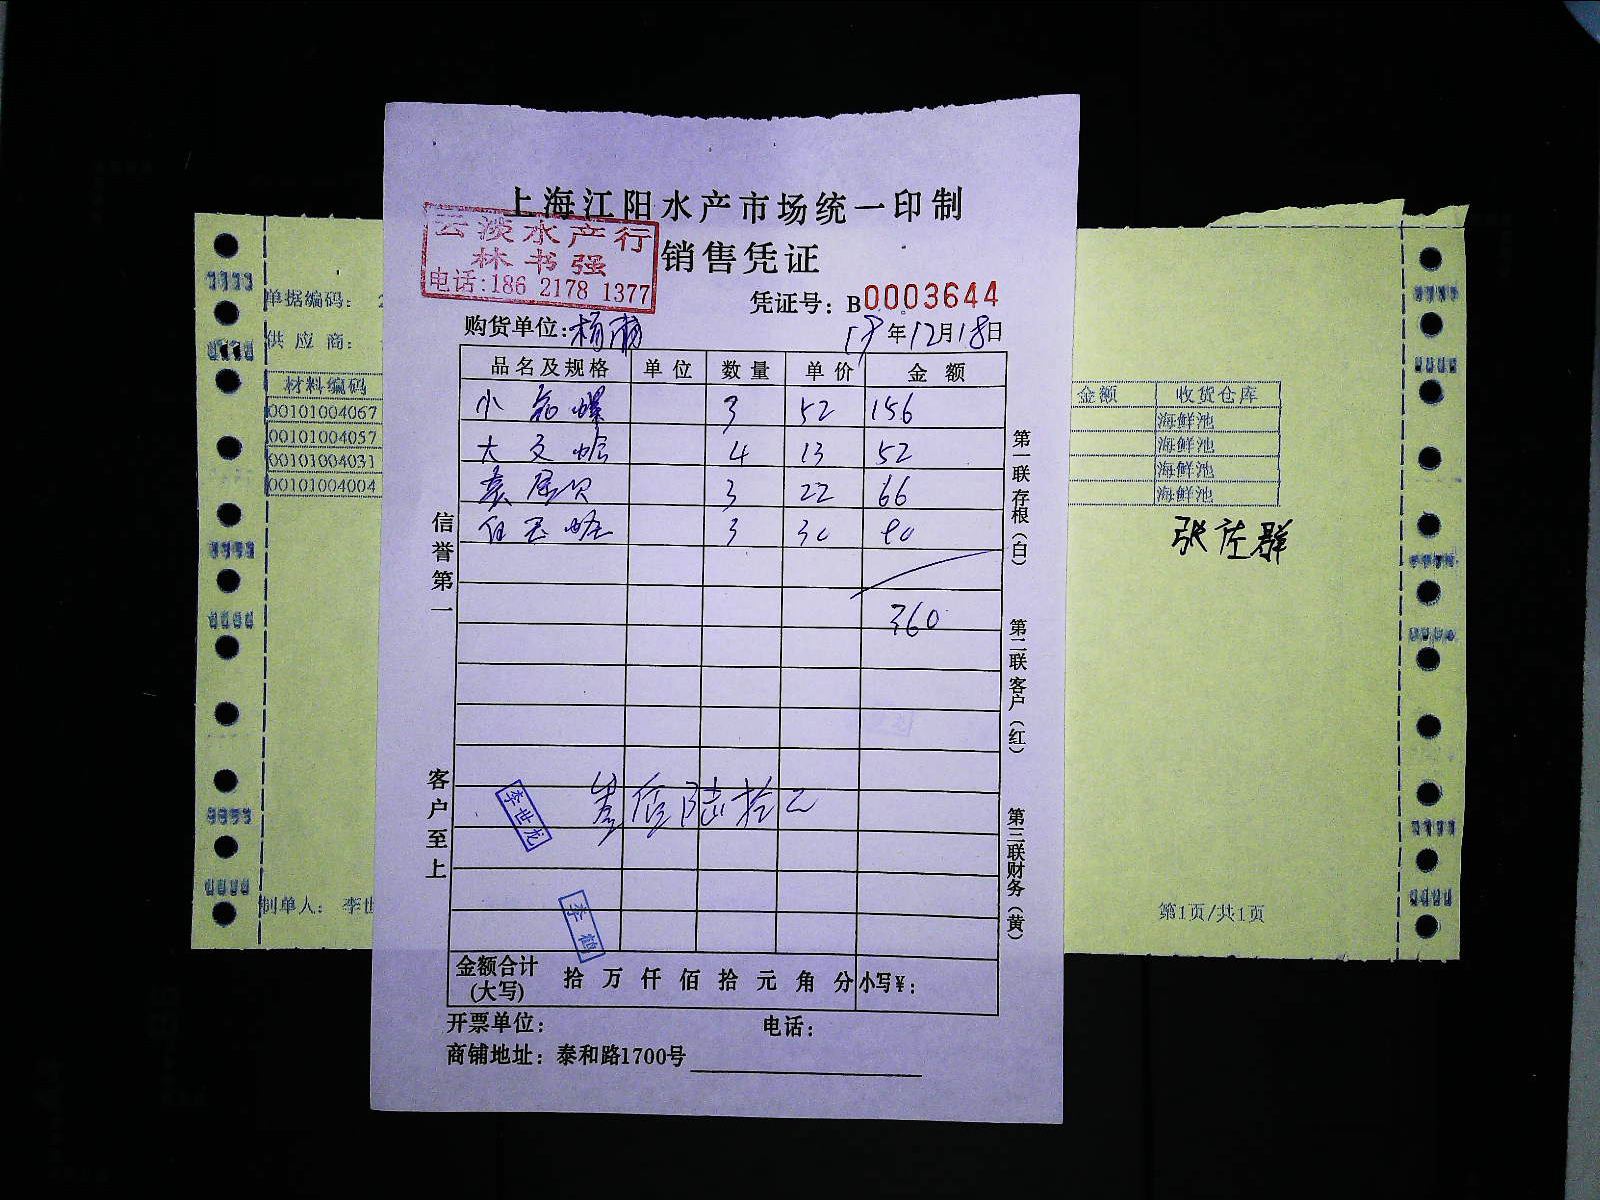 上海江阳水产市场统一印制
云淡水产行
林书强
电话:186 2178 1377
销售凭证
凭证号：B0003644
购货单位:杨
年12月18日
品名及规格 单位 数量 单价 金额
小 螺 3 52 156
大文蛤 4 13 52
3 22 66
3 30
360
佰陆拾元
李世龙
李鹤
金额合计(大写) 拾 万 仟 佰 拾 元 角 分 小写¥：
开票单位： 电话：
商铺地址：泰和路1700号
信誉第一
客户至上
第一联存根（白）
第二联客户（红）
第三联财务（黄）
单据编码：
供应商：
材料编码
00101004067
00101004057
00101004031
00101004004
制单人： 李世
金额 收货仓库
海鲜池
海鲜池
海鲜池
海鲜池
张 群
第1页/共1页